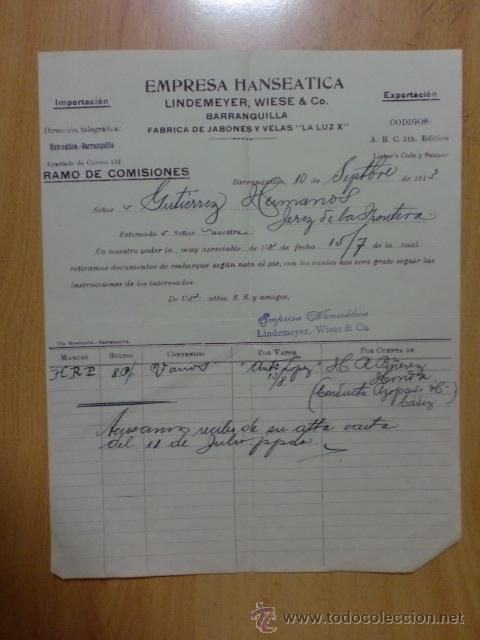 EMPRESA HANSEATICA
LINDEMEYER, WIESE & Co.
BARRANQUILLA
FABRICA DE JABONES Y VELAS "LA LUZ X"
Importación
Dirección telegráfica:
Hanseática.-Barranquilla
Apartado de Correo 132
RAMO DE COMISIONES
Exportación
CODIGOS:
A. B. C. 5th. Edition
Lieber's Code y Samper
Barranquilla, 10 de Septbre de 1913
Señor Gutiérrez Hermanos
Jerez de la Frontera
Estimado Señor nuestro
En nuestro poder la muy apreciable de Ud de fecha 15/7 de la cual
retiramos documentos de embarque según nota al pié, con los cuales nos será grato seguir las
instrucciones de los interesados.
De Ud attos. S. S. y amigos,
Empresa Hanseática
Lindemeyer, Wiese & Co.
Tip. Mogollon.-Barranquilla.
MARCAS BULTOS CONTENIDO POR VAPOR POR CUENTA DE
H.R.P. 80/ Vinos "Anto Lopez" H. A.
13/8
(Conducto
Cádiz
Acusamos recibo de su atta carta
del 11 de Julio ppdo
© www.todocoleccion.net